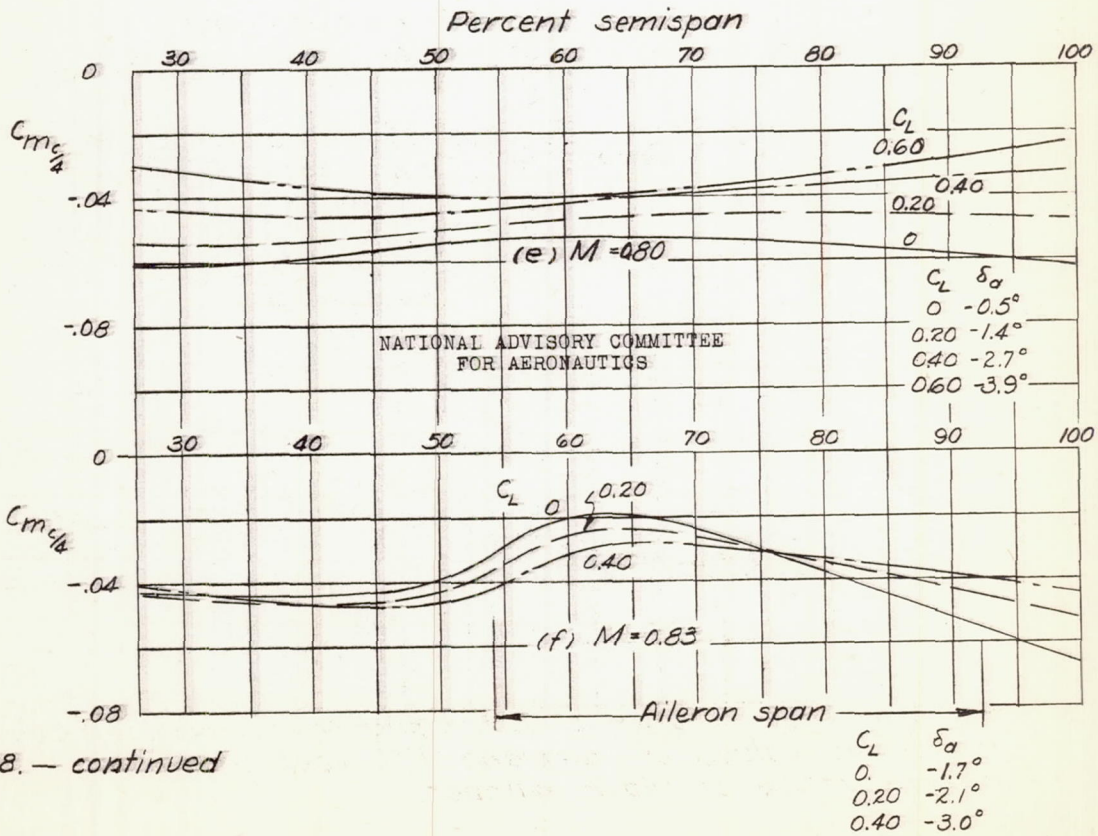 Percent semispan
30 40 50 60 70 80 90 100
0
C_m_c/4
-.04
-.08
C_L
0.60
0.40
0.20
0
(e) M = 0.80
C_L δ_a
0 -0.5°
0.20 -1.4°
0.40 -2.7°
0.60 -3.9°
NATIONAL ADVISORY COMMITTEE
FOR AERONAUTICS
30 40 50 60 70 80 90 100
0
C_m_c/4
-.04
-.08
C_L 0 0.20
0.40
(f) M = 0.83
Aileron span
C_L δ_a
0. -1.7°
0.20 -2.1°
0.40 -3.0°
8. — continued